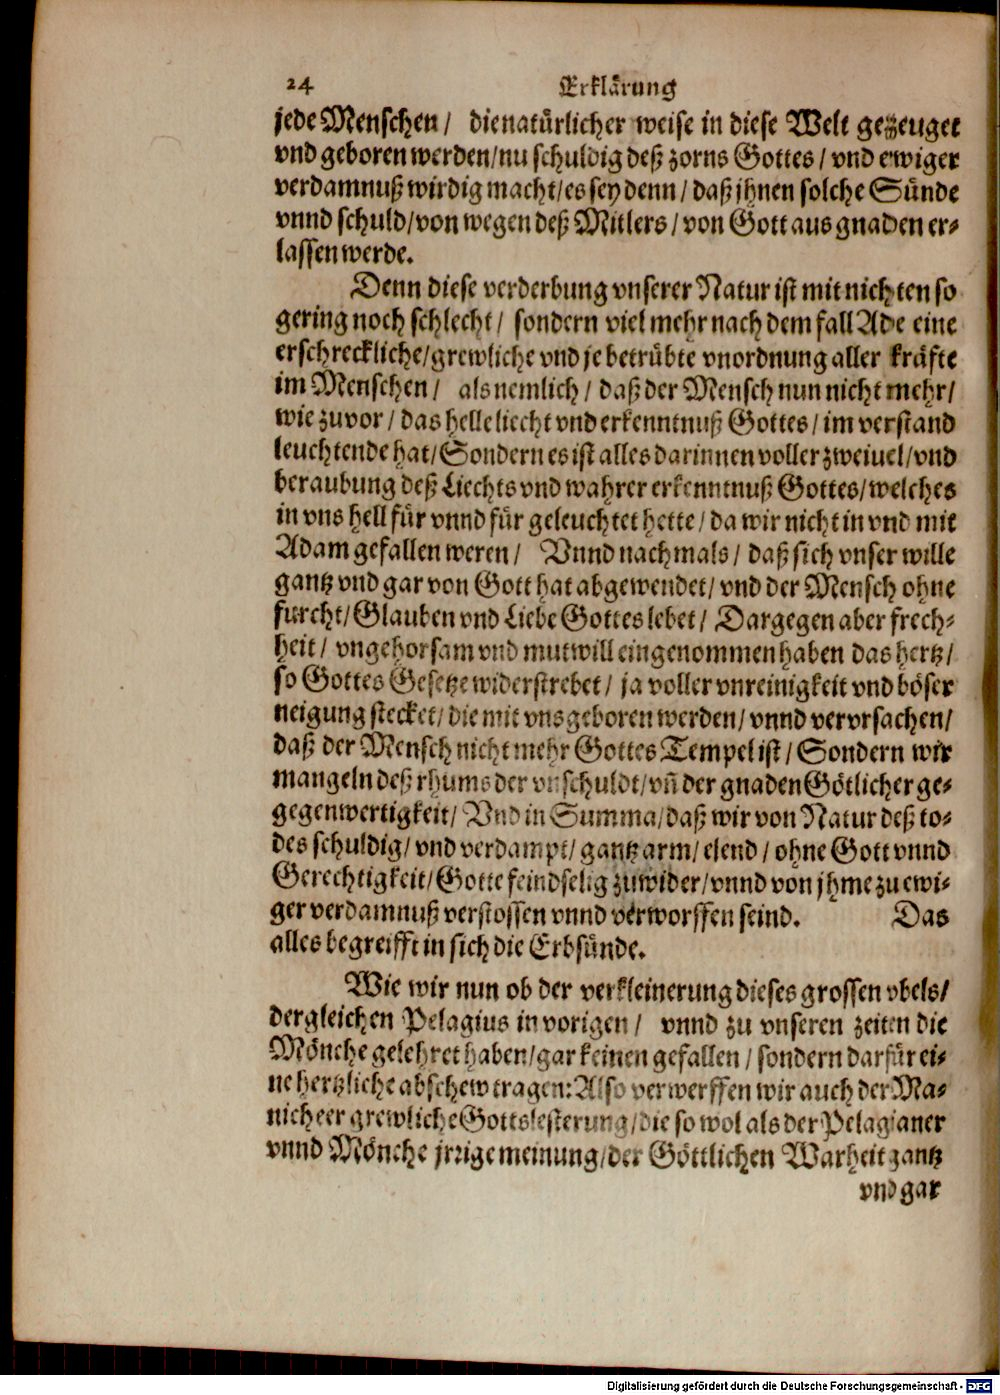 24 Erklärung
jede Menschen / die natürlicher weise in diese Welt gezeuget
vnd geboren werden / nu schuldig deß zorns Gottes / vnd ewiger
verdamnuß wirdig macht / es sey denn / daß jhnen solche Sünde
vnnd schuld / von wegen deß Mitlers / von Gott aus gnaden er-
lassen werde.
Denn diese verderbung vnserer Natur ist mit nichten so
gering noch schlecht / sondern viel mehr nach dem fall Ade eine
erschreckliche / grewliche vnd je betrübte vnordnung aller kräfte
im Menschen / als nemlich / daß der Mensch nun nicht mehr /
wie zuvor / das helle liecht vnd erkenntnuß Gottes / im verstand
leuchtende hat / Sondern es ist alles darinnen voller zweiuel / vnd
beraubung deß Liechts vnd wahrer erkenntnuß Gottes / welches
in vns hell für vnnd für geleuchtet hette / da wir nicht in vnd mit
Adam gefallen weren / Vnnd nachmals / daß sich vnser wille
gantz vnd gar von Gott hat abgewendet / vnd der Mensch ohne
furcht / Glauben vnd Liebe Gottes lebet / Dargegen aber frech-
heit / vngehorsam vnd mutwill eingenommen haben das hertz /
so Gottes Gesetze widerstrebet / ja voller vnreinigkeit vnd böser
neigung stecket / die mit vns geboren werden / vnnd vervrsachen /
daß der Mensch nicht mehr Gottes Tempel ist / Sondern wir
mangeln deß rhums der vnschuldt / vñ der gnaden Götlicher ge-
gegenwertigkeit / Vnd in Summa / daß wir von Natur deß to-
des schuldig / vnd verdampt / gantz arm / elend / ohne Gott vnnd
Gerechtigkeit / Gotte feindselig zuwider / vnnd von jhme zu ewi-
ger verdamnuß verstossen vnnd verworffen seind. Das
alles begreifft in sich die Erbsünde.
Wie wir nun ob der verkleinerung dieses grossen vbels /
dergleichen Pelagius in vorigen / vnnd zu vnseren zeiten die
Mönche gelehret haben / gar keinen gefallen / sondern darfür ei-
ne hertzliche abschew tragen: Also verwerffen wir auch der Ma-
nicheer grewliche Gottslesterung / die so wol als der Pelagianer
vnnd Mönche jrrige meinung / der Göttlichen Warheit gantz
vnd gar
Digitalisierung gefördert durch die Deutsche Forschungsgemeinschaft - DFG